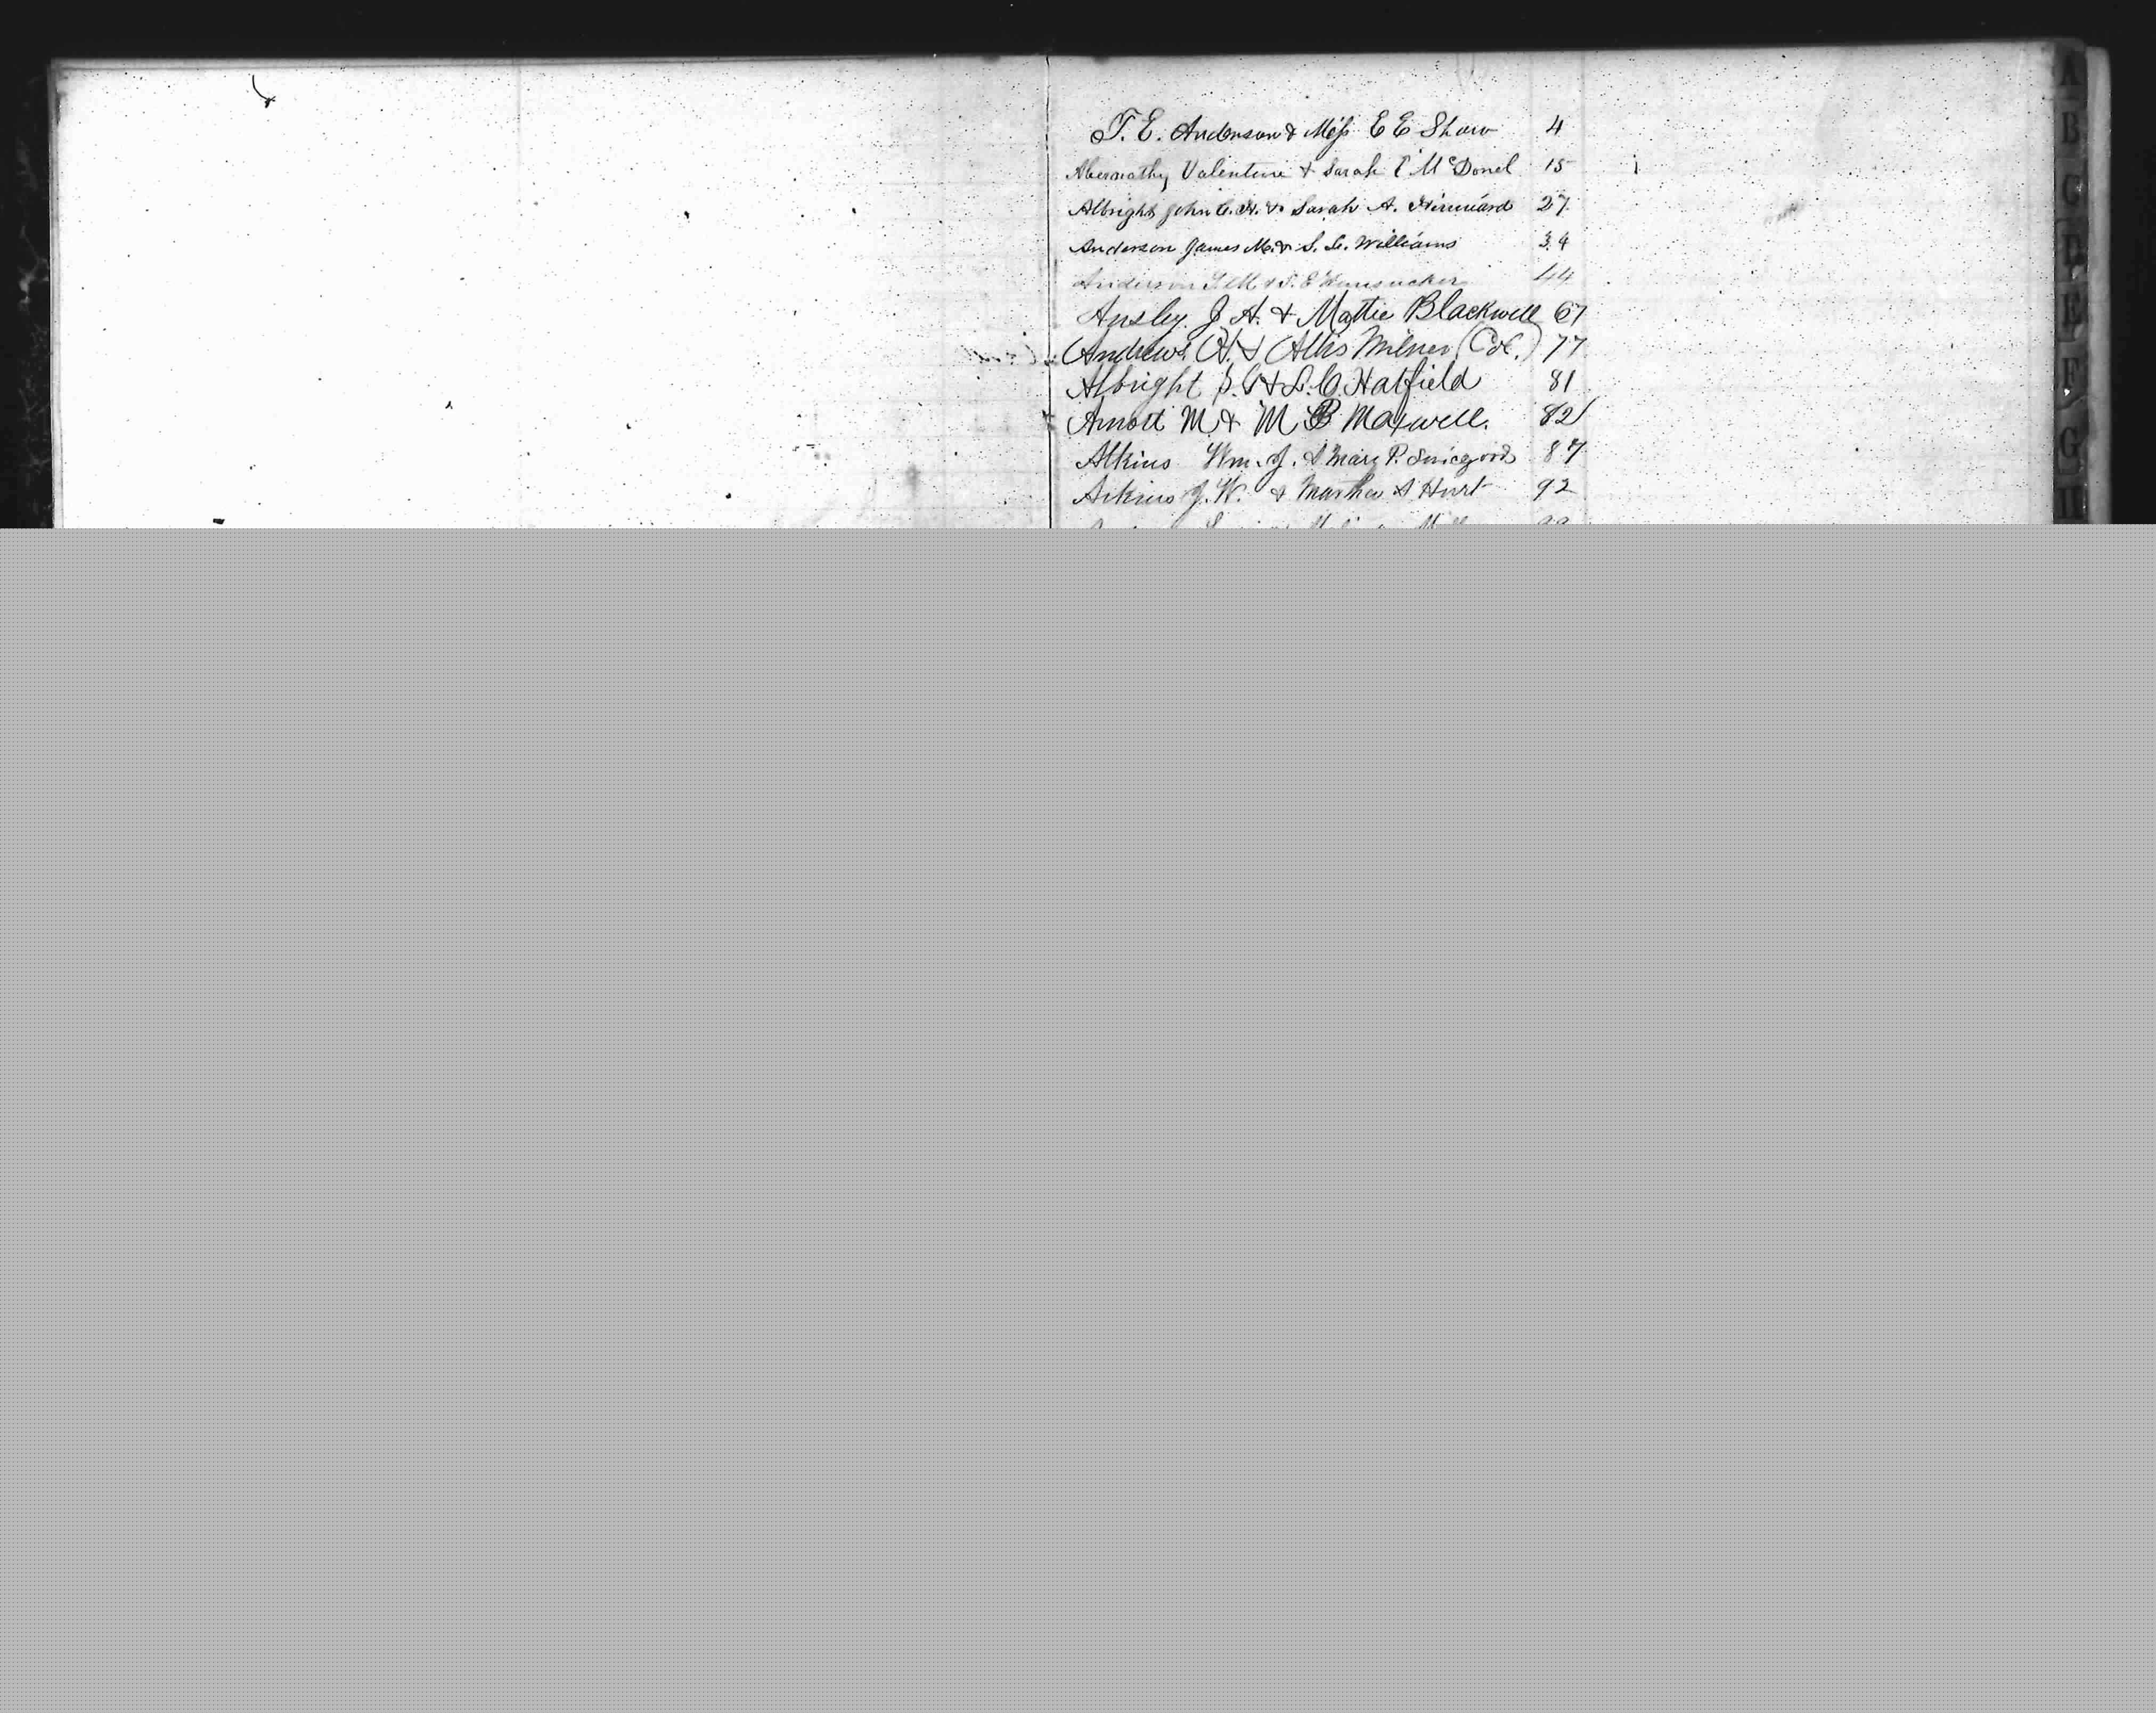 T. E. Anderson & Miss E E Shaw 4
Abernathy Valentine & Sarah E McDonel 15
Albright John C. H. & Sarah A. 27
Anderson James M. & S. L. Williams 34
Anderson & S. E Hunsucker 44
Ansley J. A. & Mattie Blackwell 67
Andrews A. & Milner (Col.) 77
Albright S. & L. C. Hatfield 81
Arnott M & M B Maxwell. 82
Atkins Wm. J. & Mary P. 87
Atkins J. W. & Martha A Hurt 92
A
B
C
D
E
F
G
H